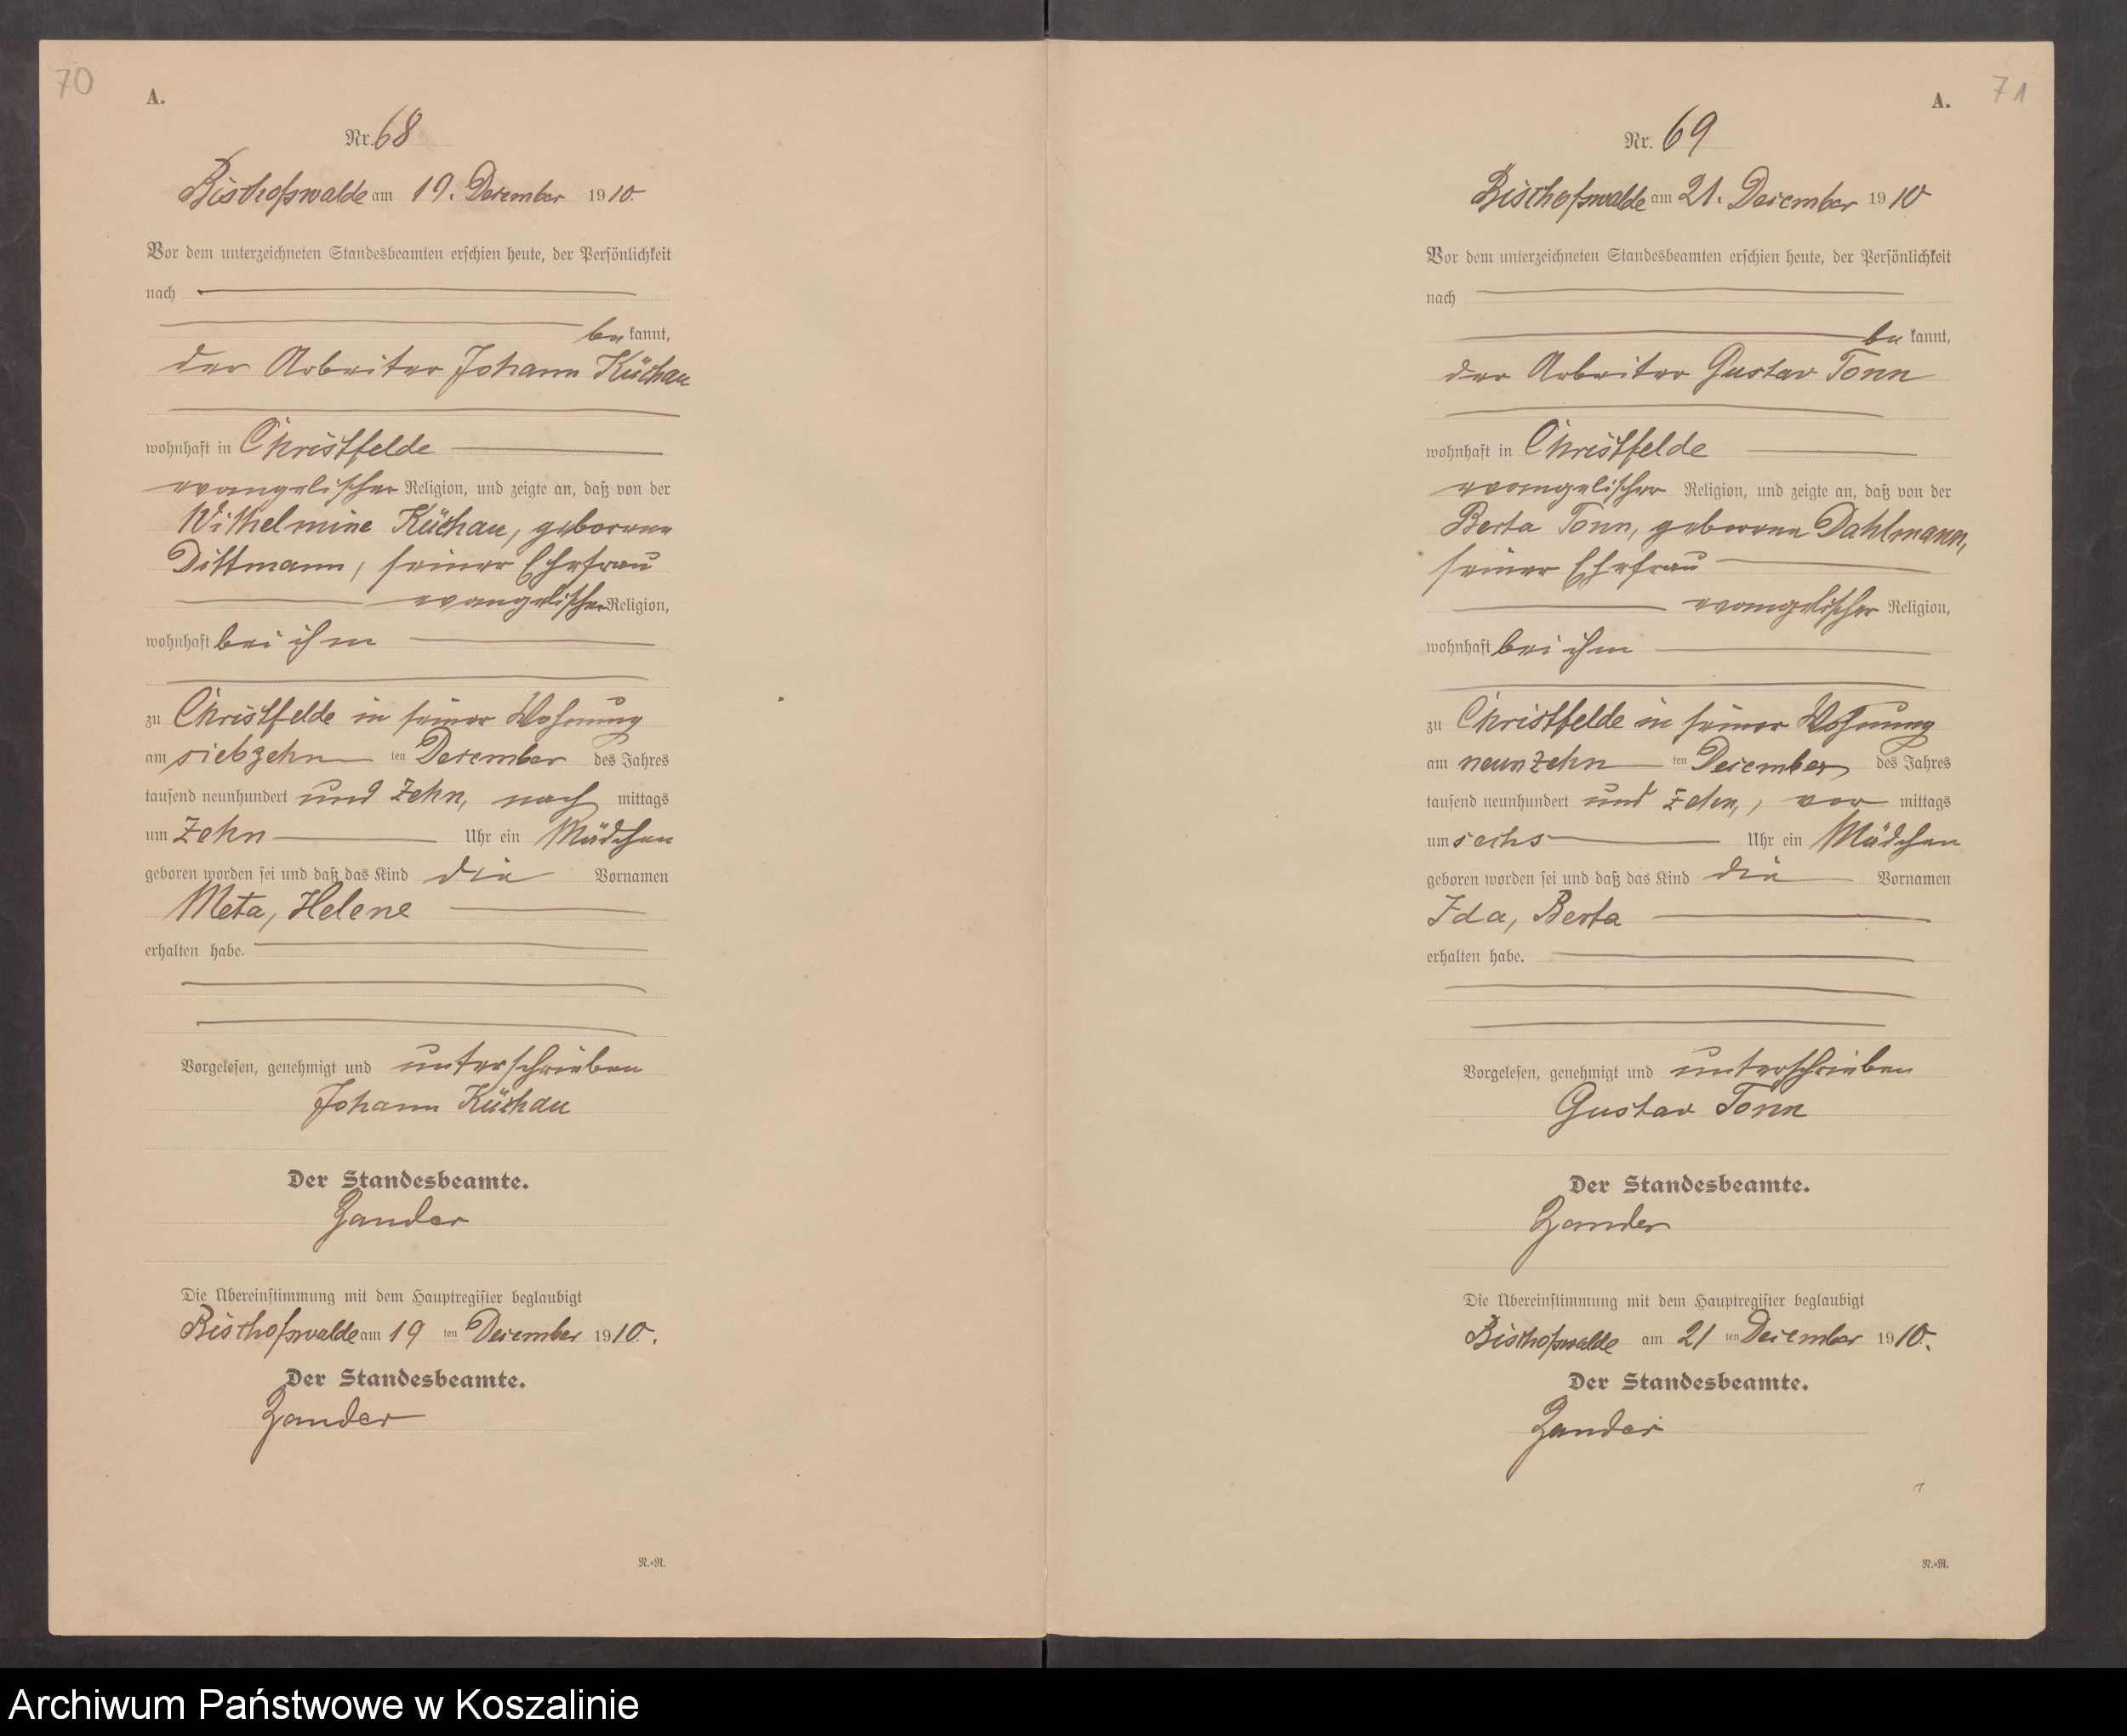 70
A.
Nr. 68
Bischofswalde am 19. Dezember 1910.
Vor dem unterzeichneten Standesbeamten erschien heute, der Persönlichkeit
nach
be kannt,
der Arbeiter Johann Küchau
wohnhaft in Christfelde
evangelischer Religion, und zeigte an, daß von der
Wilhelmine Küchau, geborene
Dittmann, seiner Ehefrau
evangelischer Religion,
wohnhaft bei ihm
zu Christfelde in seiner Wohnung
am siebzehn ten Dezember des Jahres
tausend neunhundert und zehn, nach mittags
um zehn Uhr ein Mädchen
geboren worden sei und daß das Kind die Vornamen
Meta, Helene
erhalten habe.
Vorgelesen, genehmigt und unterschrieben
Johann Küchau
Der Standesbeamte.
Zander
Die Übereinstimmung mit dem Hauptregister beglaubigt
Bischofswalde am 19 ten Dezember 1910.
Der Standesbeamte.
Zander
N.=R.
71
A.
Nr. 69
Bischofswalde am 21. Dezember 1910
Vor dem unterzeichneten Standesbeamten erschien heute, der Persönlichkeit
nach
be kannt,
der Arbeiter Gustav Tonn
wohnhaft in Christfelde
evangelischer Religion, und zeigte an, daß von der
Berta Tonn, geborene Dahlmann,
seiner Ehefrau
evangelischer Religion,
wohnhaft bei ihm
zu Christfelde in seiner Wohnung
am neunzehn ten Dezember des Jahres
tausend neunhundert und zehn, vor mittags
um sechs Uhr ein Mädchen
geboren worden sei und daß das Kind die Vornamen
Ida, Berta
erhalten habe.
Vorgelesen, genehmigt und unterschrieben
Gustav Tonn
Der Standesbeamte.
Zander
Die Übereinstimmung mit dem Hauptregister beglaubigt
Bischofswalde am 21 ten Dezember 1910.
Der Standesbeamte.
Zander
N.=R.
Archiwum Państwowe w Koszalinie